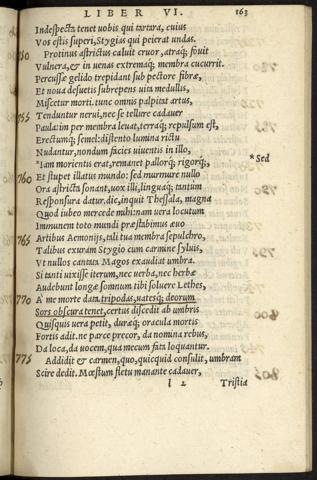 LIBER VI. 163
Indespecta tenet uobis qui tartara, cuius
Vos estis superi, Stygias qui peierat undas.
750 Protinus astrictus caluit cruor, atraq; fouit
Vulnera, & in uenas extremaq; membra cucurrit.
Percussæ gelido trepidant sub pectore fibræ,
Et noua desuetis subrepens uita medullis,
Miscetur morti. tunc omnis palpitat artus,
755 Tenduntur nerui, nec se tellure cadauer
Paulatim per membra leuat, terraq; repulsum est,
Erectumq; semel: distento lumina rictu
Nudantur, nondum facies uiuentis in illo,
*Iam morientis erat, remanet pallorq; rigorq;, *Sed
760 Et stupet illatus mundo: sed murmure nullo
Ora astricta sonant, uox illi, linguaq; tantum
Responsura datur, dic, inquit Thessala, magna
Quod iubeo mercede mihi: nam uera locutum
Immunem toto mundi præstabimus æuo
765 Artibus Aemonijs, tali tua membra sepulchro,
Talibus exuram Stygio cum carmine syluis,
Vt nullos cantata Magos exaudiat umbra.
Si tanti uixisse iterum, nec uerba, nec herbæ
Audebunt longæ somnum tibi soluere Lethes,
770 A' me morte data. tripodas, uatesq; deorum
Sors obscura tenet, certus discedit ab umbris
Quisquis uera petit, duraq; oracula mortis
Fortis adit. ne parce precor, da nomina rebus,
Da loca, da uocem, qua mecum fata loquantur.
775 Addidit & carmen, quo, quicquid consulit, umbram
Scire dedit. Mœstum fletu manante cadauer,
l 2 Tristia